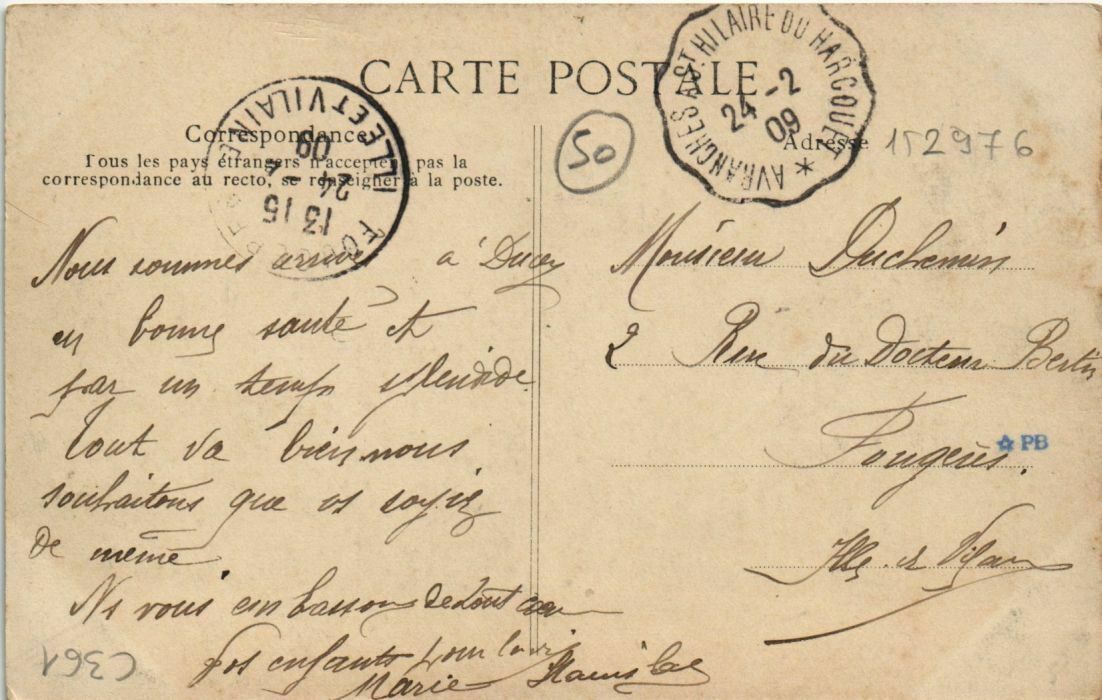 CARTE POSTALE
AVRANCHES A ST. HILAIRE DU HARCOUET *
24 -2
09
FOUGERES
ILLE ET VILAINE
13 15
24 -
09
50
Correspondance
Tous les pays étrangers n'acceptent pas la
correspondance au recto, se renseigner à la poste.
Nous sommes arrivés à Ducey
en bonne santé et
par un temps splendide.
Tout va bien nous
souhaitons que vs soyiez
de même.
Ns vous embrassons de tout coeur
Vos enfants pour la vie
Marie Stanislas
C361
Adresse
152976
Monsieur Duchemin
2 Rue du Docteur Bertin
Fougères.
☆ PB
Ille et Vilaine